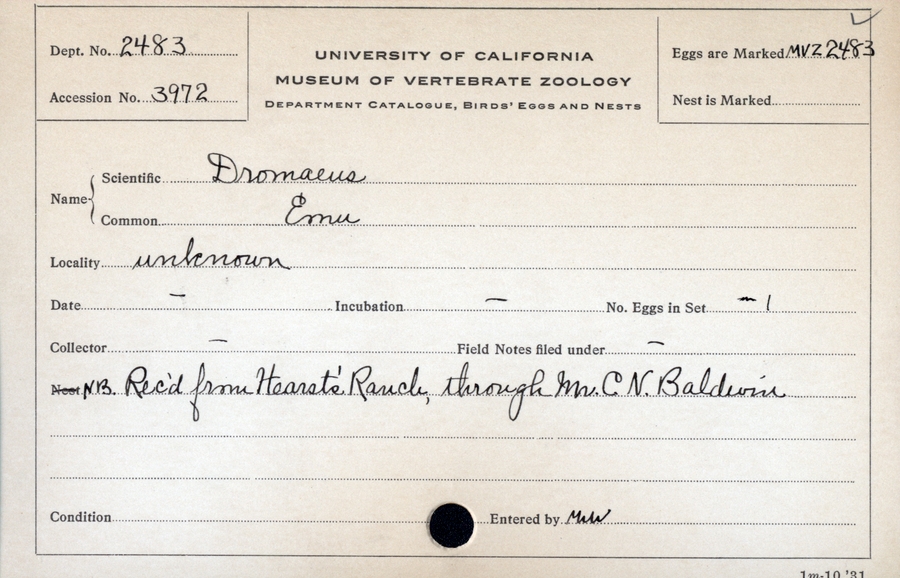 Dept. No. 2483
Accession No. 3972
UNIVERSITY OF CALIFORNIA
MUSEUM OF VERTEBRATE ZOOLOGY
DEPARTMENT CATALOGUE, BIRDS' EGGS AND NESTS
Eggs are Marked MVZ 2483
Nest is Marked
Name
Scientific Dromaeus
Common Emu
Locality unknown
Date – Incubation – No. Eggs in Set 1
Collector – Field Notes filed under –
Nest NB. Rec'd from Hearst's Ranch, through Mr. C N. Baldwin
Condition Entered by
1m-10,'31